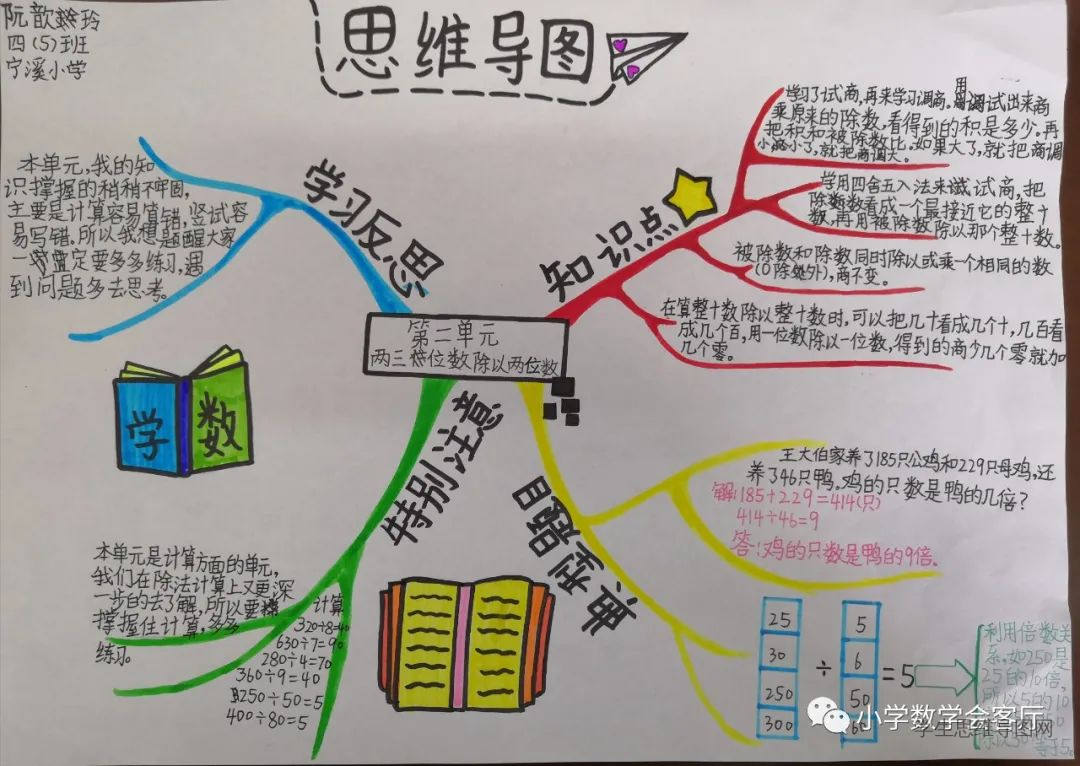 阮歆 玲
四(5)班
宁溪小学
思维导图
学习反思
本单元,我的知
识掌握的稍稍不牢固,
主要是计算容易算错,竖试容
易写错,所以我想题醒大家
一定要多多练习,遇
到问题多去思考。
知识点
学习了试商,再来学习调商。用调试出来商
乘原来的除数,看得到的积是多少。再
把积和被除数比。如果大了,就把商调
小,小了,就把商调大。
学用四舍五入法来试商,把
除数看成一个最接近它的整十
数,再用被除数除以那个整十数。
被除数和除数同时除以或乘一个相同的数
(0除外),商不变。
在算整十数除以整十数时,可以把几十看成几个十,几百看
成几个百,用一位数除以一位数,得到的商少几个零就加
几个零。
第二单元
两三位数除以两位数
学
数
特别注意
本单元是计算方面的单元,
我们在除法计算上又更深
一步的去了解,所以要
掌握住计算,多多
练习。
计算
320÷8=40
630÷7=90
280÷4=70
360÷9=40
250÷50=5
400÷80=5
典型题目
王大伯家养了185只公鸡和229只母鸡,还
养了46只鸭。鸡的只数是鸭的几倍?
解:185+229=414(只)
414÷46=9
答:鸡的只数是鸭的9倍。
25
30
250
300
÷
5
6
50
60
=5
利用倍数关
系。如250是
25的10倍,
所以5的10
小学数学会客厅
学生思维导图网